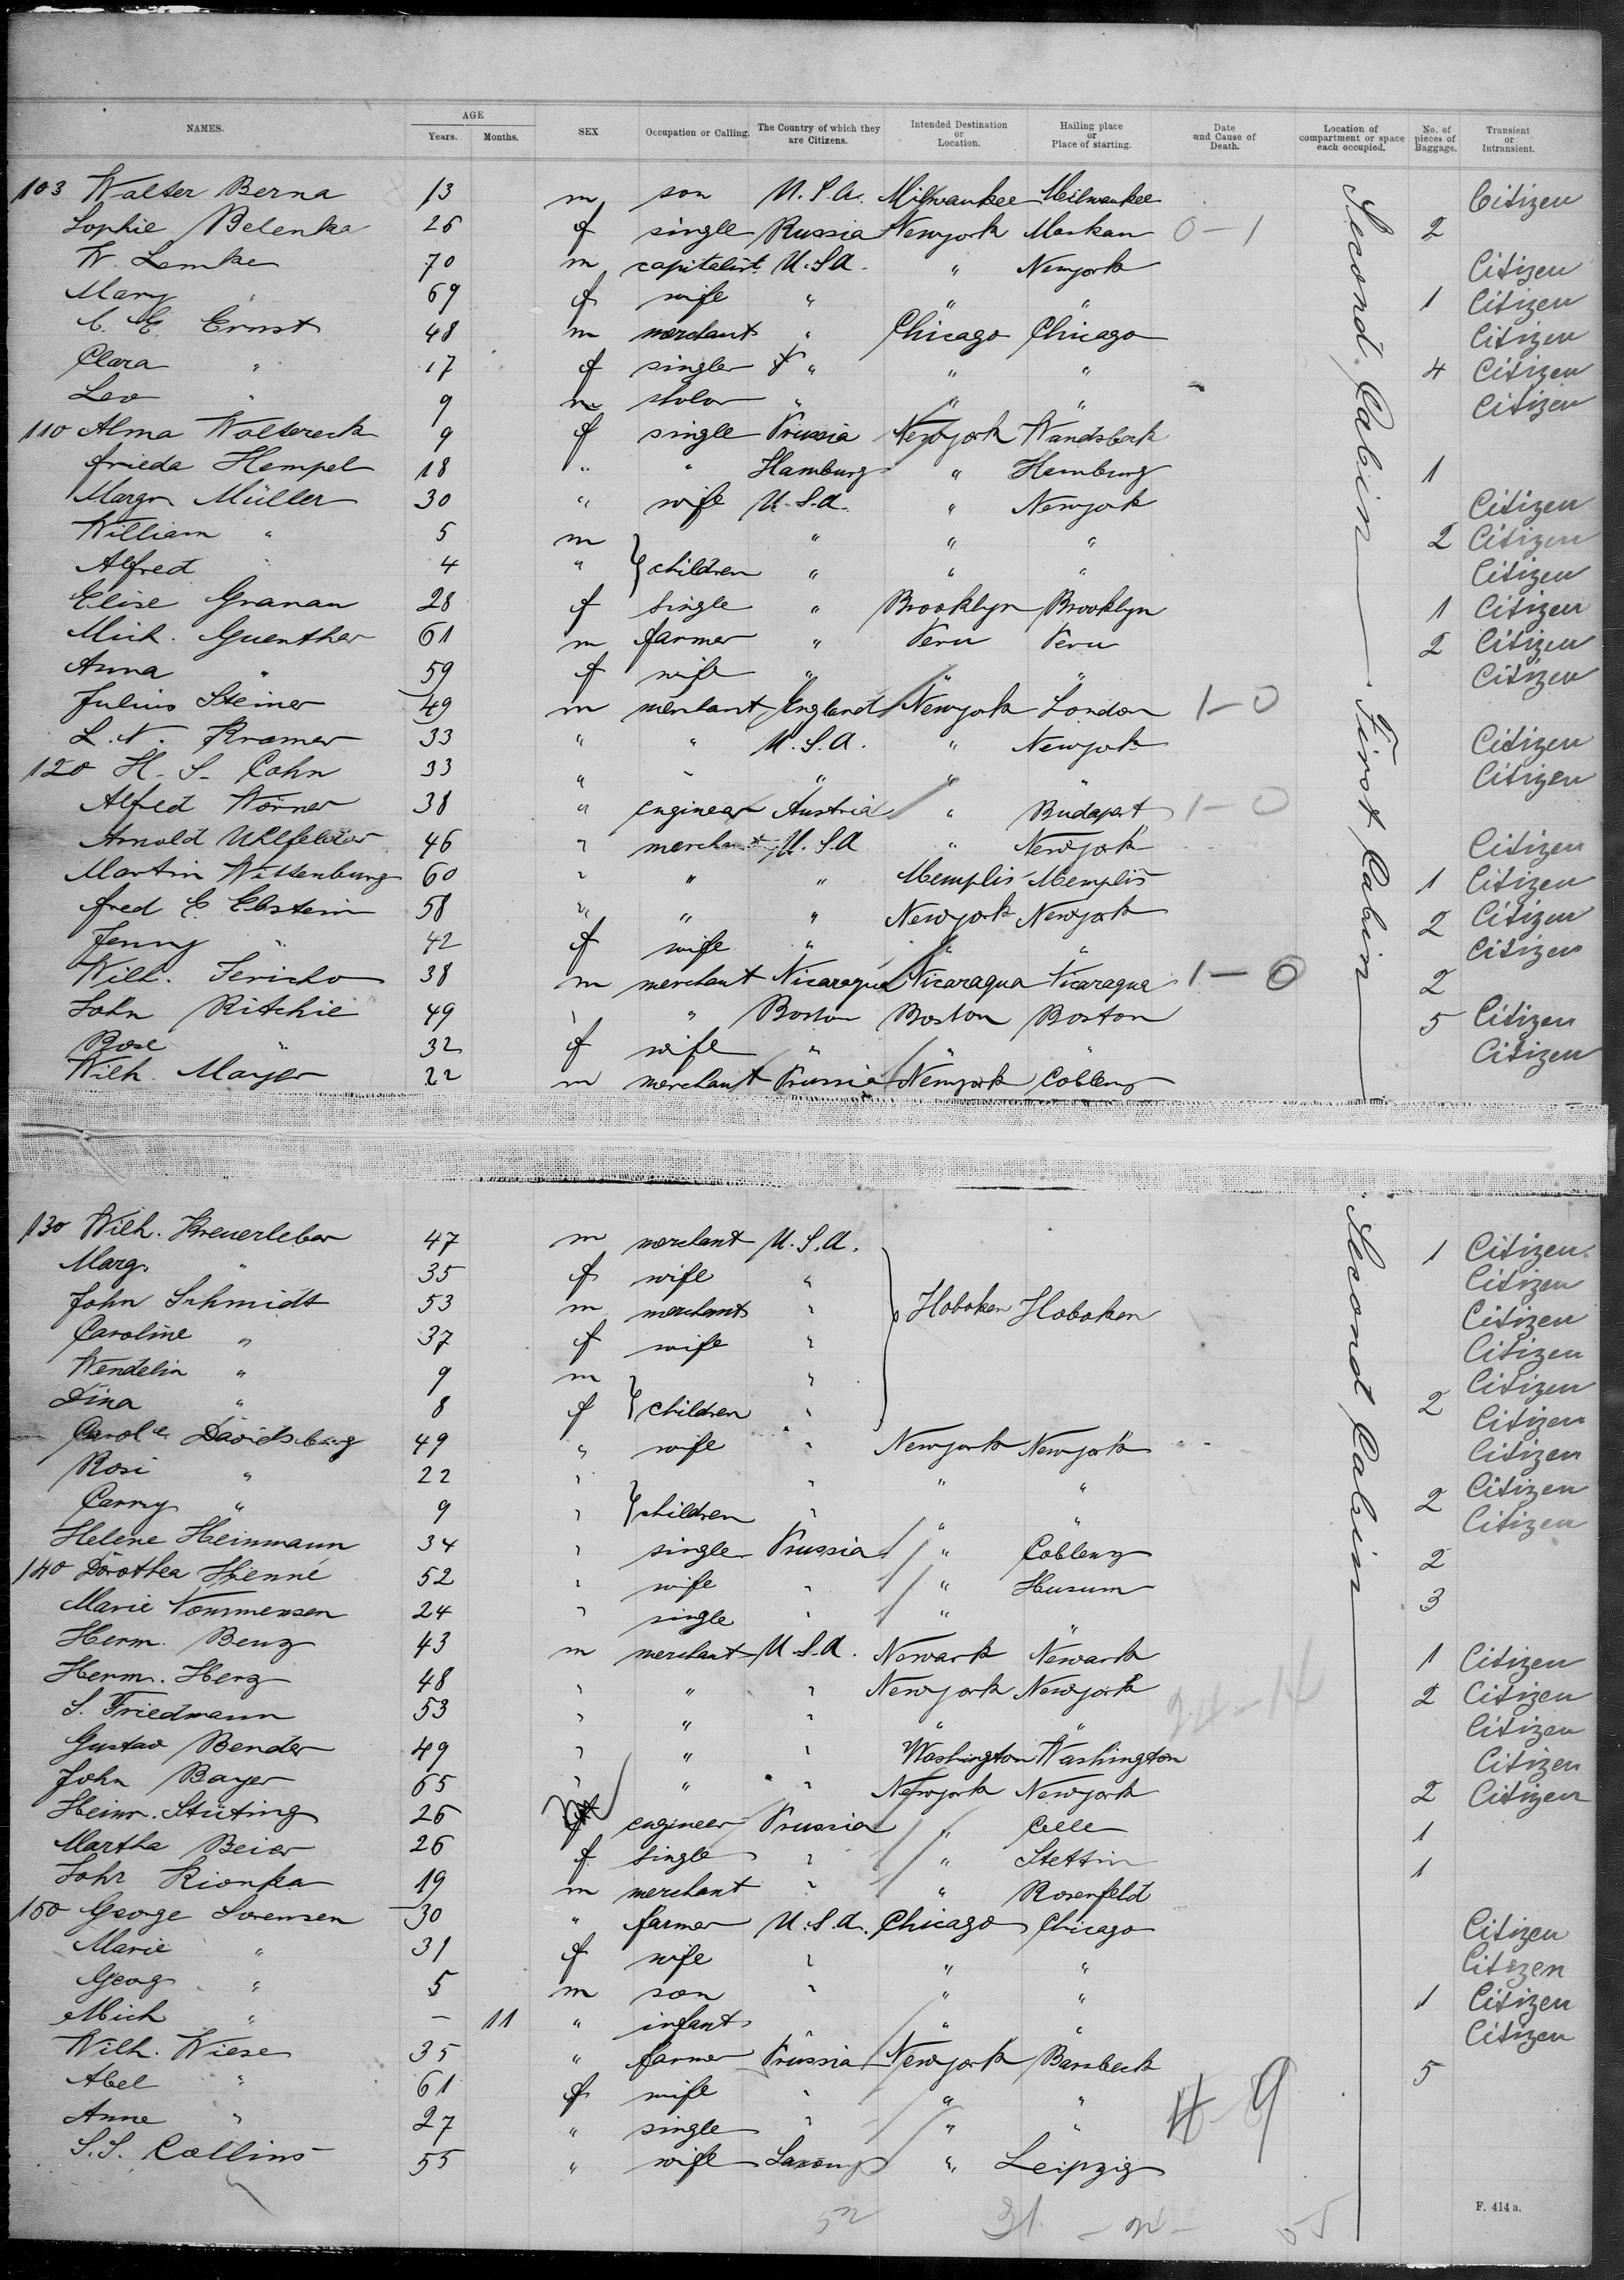 NAMES. AGE Years. Months. SEX Occupation or Calling. The Country of which they are Citizens. Intended Destination or Location. Hailing place or Place of starting. Date and Cause of Death. Location of compartment or space each occupied. No. of pieces of Baggage. Transient or Intransient.
103 Walter Berna 13 m son U.S.A. Milwaukee Milwaukee Citizen
Sophie Belenka 26 f single Russia Newyork 0-1 2
W. Lemke 70 m capitalist U.S.A. " Newyork Citizen
Mary " 69 f wife " " " 1 Citizen
C. E. Ernst 48 m merchant " Chicago Chicago Citizen
Clara " 17 f single " " " 4 Citizen
Leo " 9 m " " " Citizen
110 Alma Woltereck 9 f single Prussia Newyork Wandsbeck
Frieda Hempel 18 " " Hamburg " Hamburg 1
Margr Müller 30 " wife U.S.A. " Newyork Citizen
William " 5 m } children " " " 2 Citizen
Alfred " 4 " " " " Citizen
Elise Granau 28 f single " Brooklyn Brooklyn 1 Citizen
Mich. Guenther 61 m farmer " Peru Peru 2 Citizen
Anna " 59 f wife " " " Citizen
Julius Steiner 49 m merchant England Newyork London 1-0
L. N. Kramer 33 " " U.S.A. " Newyork Citizen
120 H. S. Cohn 33 " " " " " Citizen
Alfred Wörner 38 " engineer Austria " Budapest 1-0
Arnold Uhlfelder 46 " merchant U.S.A " Newyork Citizen
Martin Wittenburg 60 " " " Memplis Memplis 1 Citizen
Fred E. Ebstein 58 " " " Newyork Newyork 2 Citizen
Jenny " 42 f wife " " " Citizen
Wilh. Jericho 38 m merchant Nicaragua Nicaragua Nicaragua 1-0 2
John Ritchie 49 " " Boston Boston Boston 5 Citizen
Rose " 32 f wife " " " Citizen
Wilh. Mayer 22 m merchant Prussia Newyork Coblenz
Second Cabin — First Cabin
130 Wilh. Breuerleber 47 m merchant U.S.A. 1 Citizen
Marg. " 35 f wife " Citizen
John Schmidt 53 m merchant " } Hoboken Hoboken Citizen
Caroline " 37 f wife " Citizen
Wendelin " 9 m " Citizen
Dina " 8 f } children " 2 Citizen
Carole Davidsburg 49 " wife " Newyork Newyork Citizen
Rosi " 22 " " " " Citizen
Canny " 9 " } children " " " 2 Citizen
Helene Heinmann 34 " single Prussia " Coblenz 2
140 Dorothea Henne 52 " wife " " Husum 3
Marie Nommensen 24 " single " " "
Herm. Benz 43 m merchant U.S.A. Newark Newark 1 Citizen
Herm. Herz 48 " " " Newyork Newyork 2 Citizen
S. Friedmann 53 " " " " " Citizen
Gustav Bender 49 " " " Washington Washington Citizen
John Bayer 65 " " " Newyork Newyork 2 Citizen
Heinr. Stüting 26 engineer Prussia " Celle 1
Martha Beier 26 f single " " Stettin 1
Kionka 19 m merchant " " Rosenfeld
150 George Sorensen 30 " farmer U.S.A. Chicago Chicago Citizen
Marie " 31 f wife " " " Citizen
Georg " 5 m son " " " 1 Citizen
Mich " - 11 " infant " " " Citizen
Wilh. Wiese 35 " farmer Prussia Newyork Barsbeck 5
Abel " 61 f wife " " "
Anne " 27 " single " " " 4-9
S.S. Collins 55 " wife Saxony " Leipzig
Second Cabin
F. 414 a.